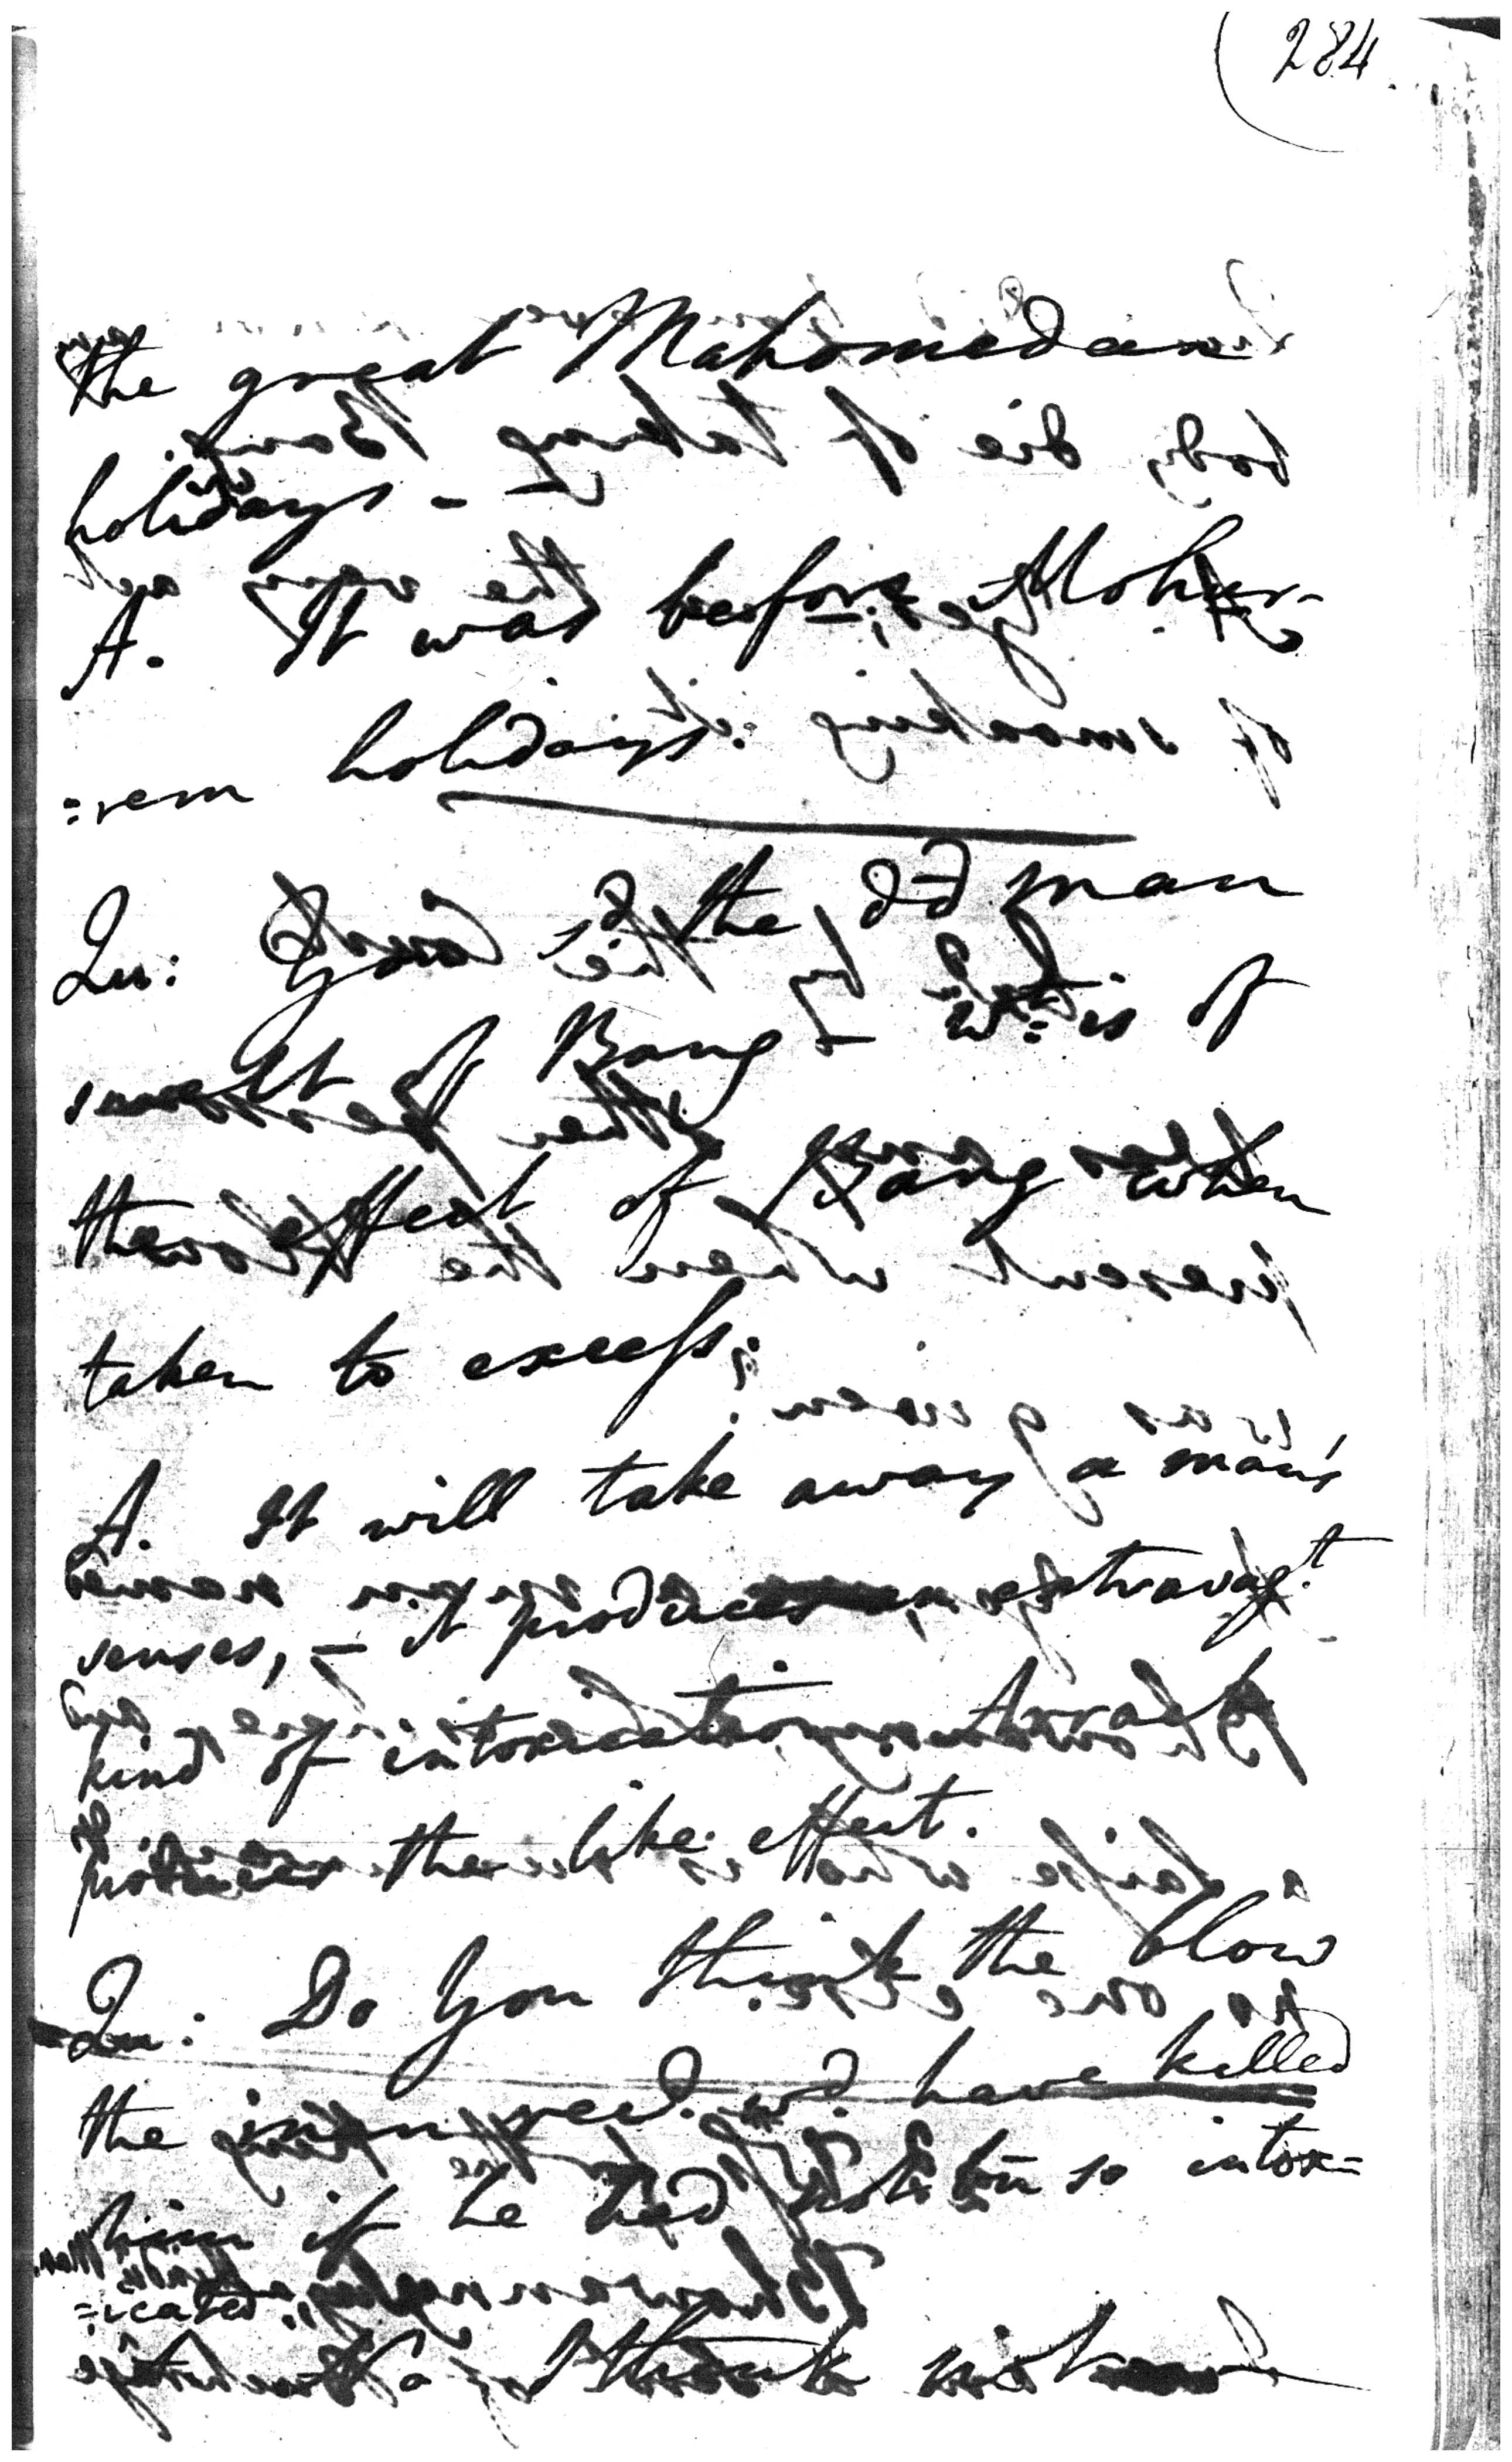 284.
the great Mahomedan
holidays -
A. It was before Mohur-
=rem holidays.
Qu: You sd. the dd. man
smelt of Bang - wt. is
the effect of Bang when
taken to excess;
A. It will take away a man's
senses, - it produces extravagt.
kind of intoxication
produces the like effect.
Qu: Do You think the blow
the recd. wd. have killed
him if he had not bn so intox=
=icated.
I think not